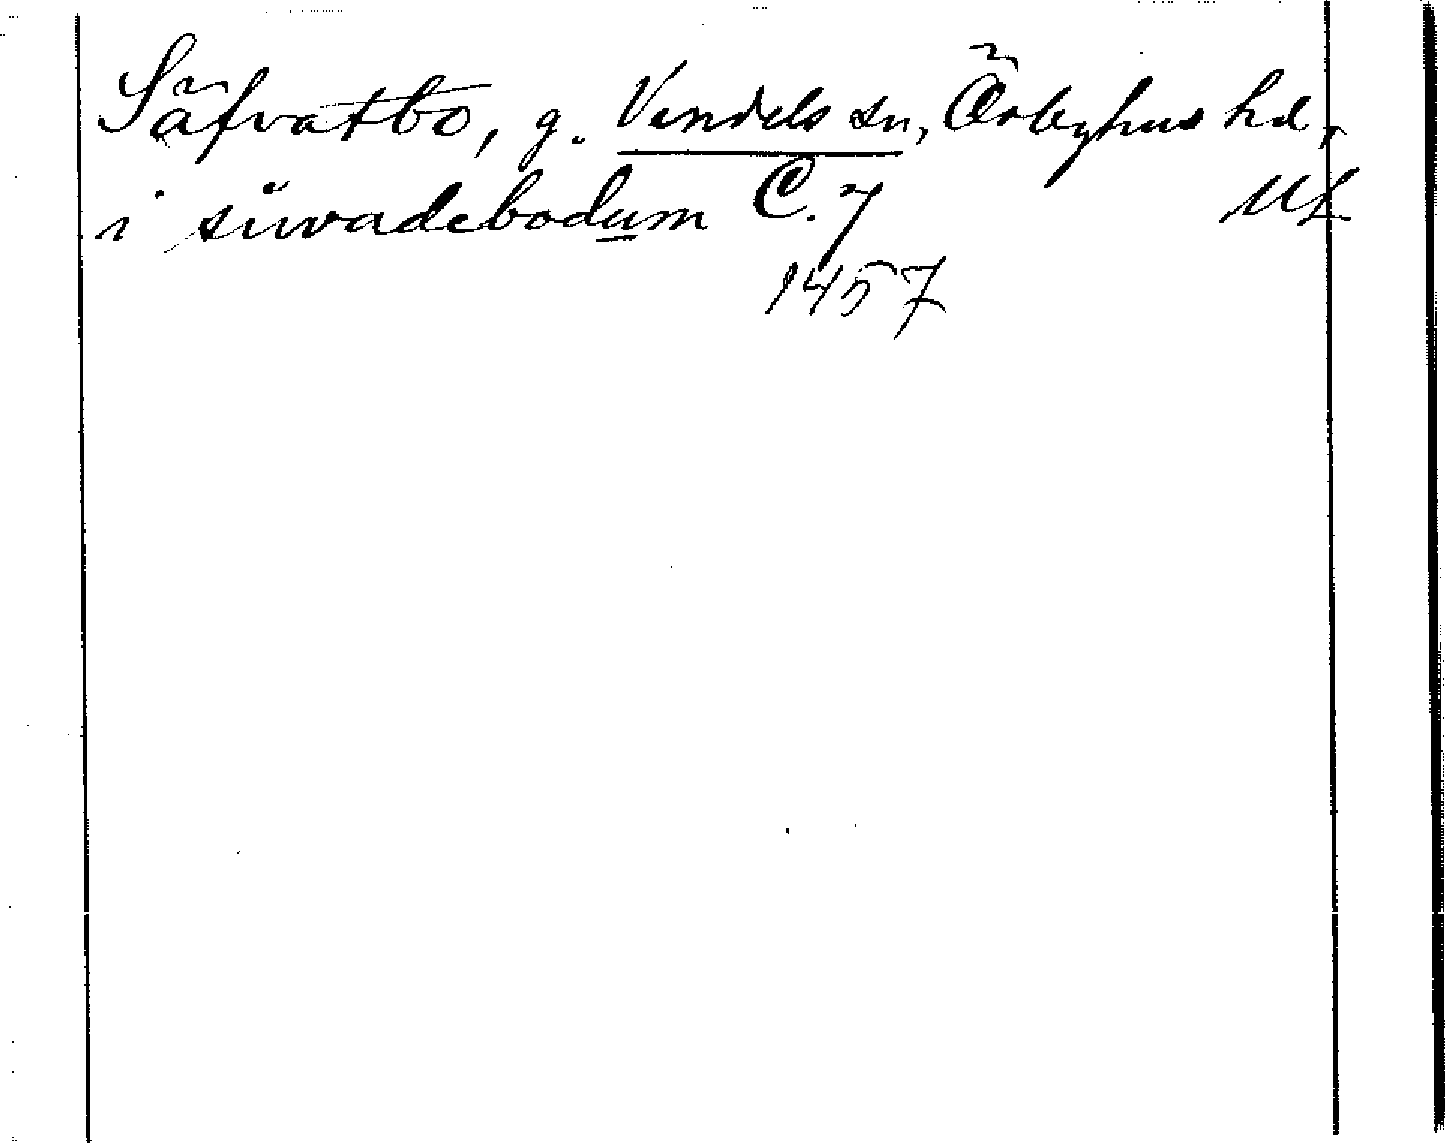 Säfvastbo, g. Vendels sn, Örbyhus hd,
i süvadebodum C. 7 UL
1457